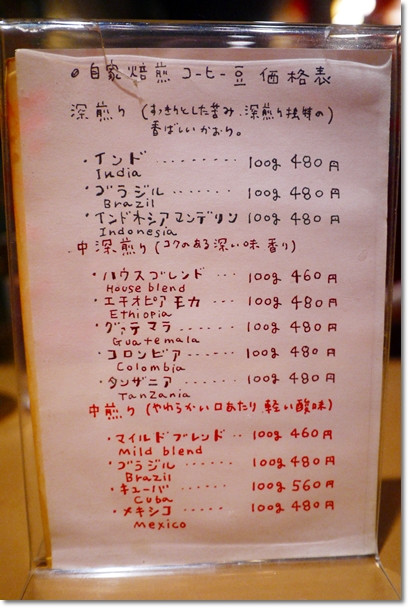 自家焙煎 コーヒー豆 価格表
深煎り (すっきりとした苦み、深煎り独特の
香ばしいかおり。)
・インド ········ 100g 480円
India
・ブラジル ······· 100g 480円
Brazil
・インドネシアマンデリン 100g 480円
Indonesia
中深煎り (コクのある深い味 香り)
・ハウスブレンド ··· 100g 460円
House blend
・エチオピア モカ ·· 100g 480円
Ethiopia
・グァテマラ ····· 100g 480円
Guatemala
・コロンビア ····· 100g 480円
Colombia
・タンザニア ····· 100g 480円
Tanzania
中煎り (やわらかい口あたり 軽い酸味)
・マイルドブレンド ·· 100g 460円
Mild blend
・ブラジル ······ 100g 480円
Brazil
・キューバ ······ 100g 560円
Cuba
・メキシコ ······ 100g 480円
Mexico